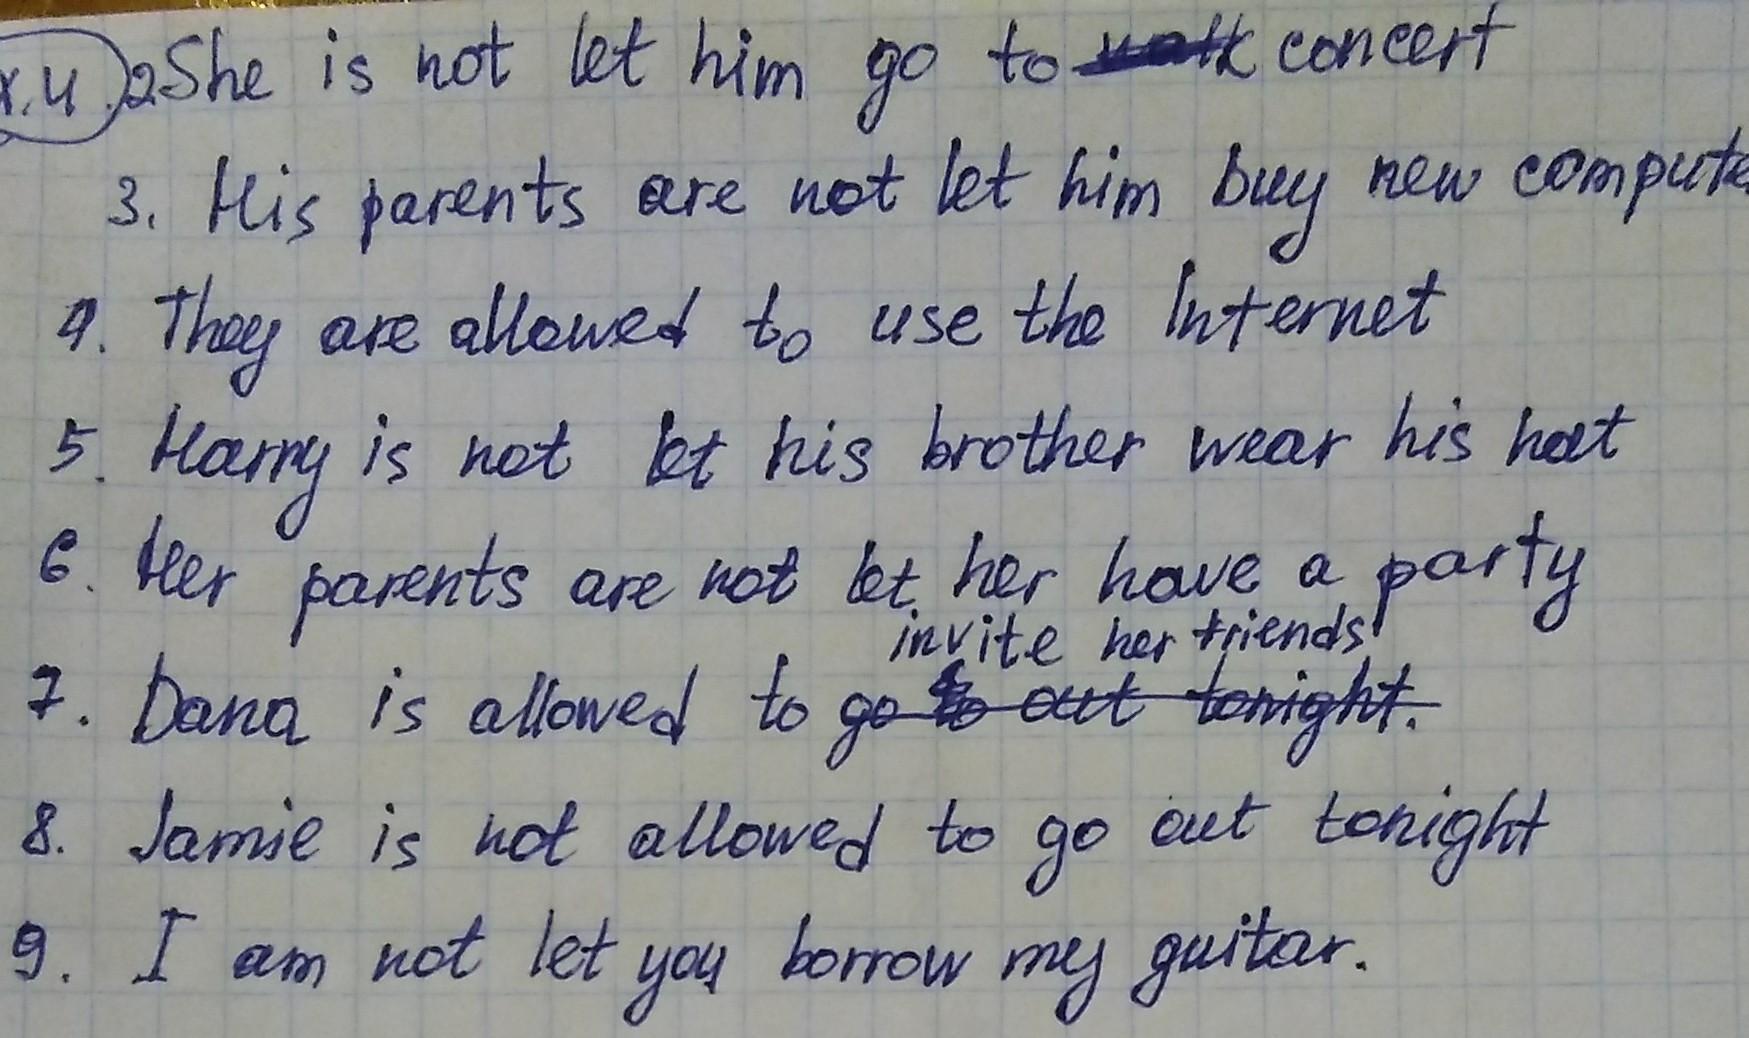 x.4. 2. She is not let him go to concert
3. His parents are not let him buy new compute
4. They are allowed to use the Internet
5. Harry is not let his brother wear his hat
6. Her parents are not let her have a party
invite her friends
7. Dana is allowed to go to out tonight.
8. Jamie is not allowed to go out tonight
9. I am not let you borrow my guitar.